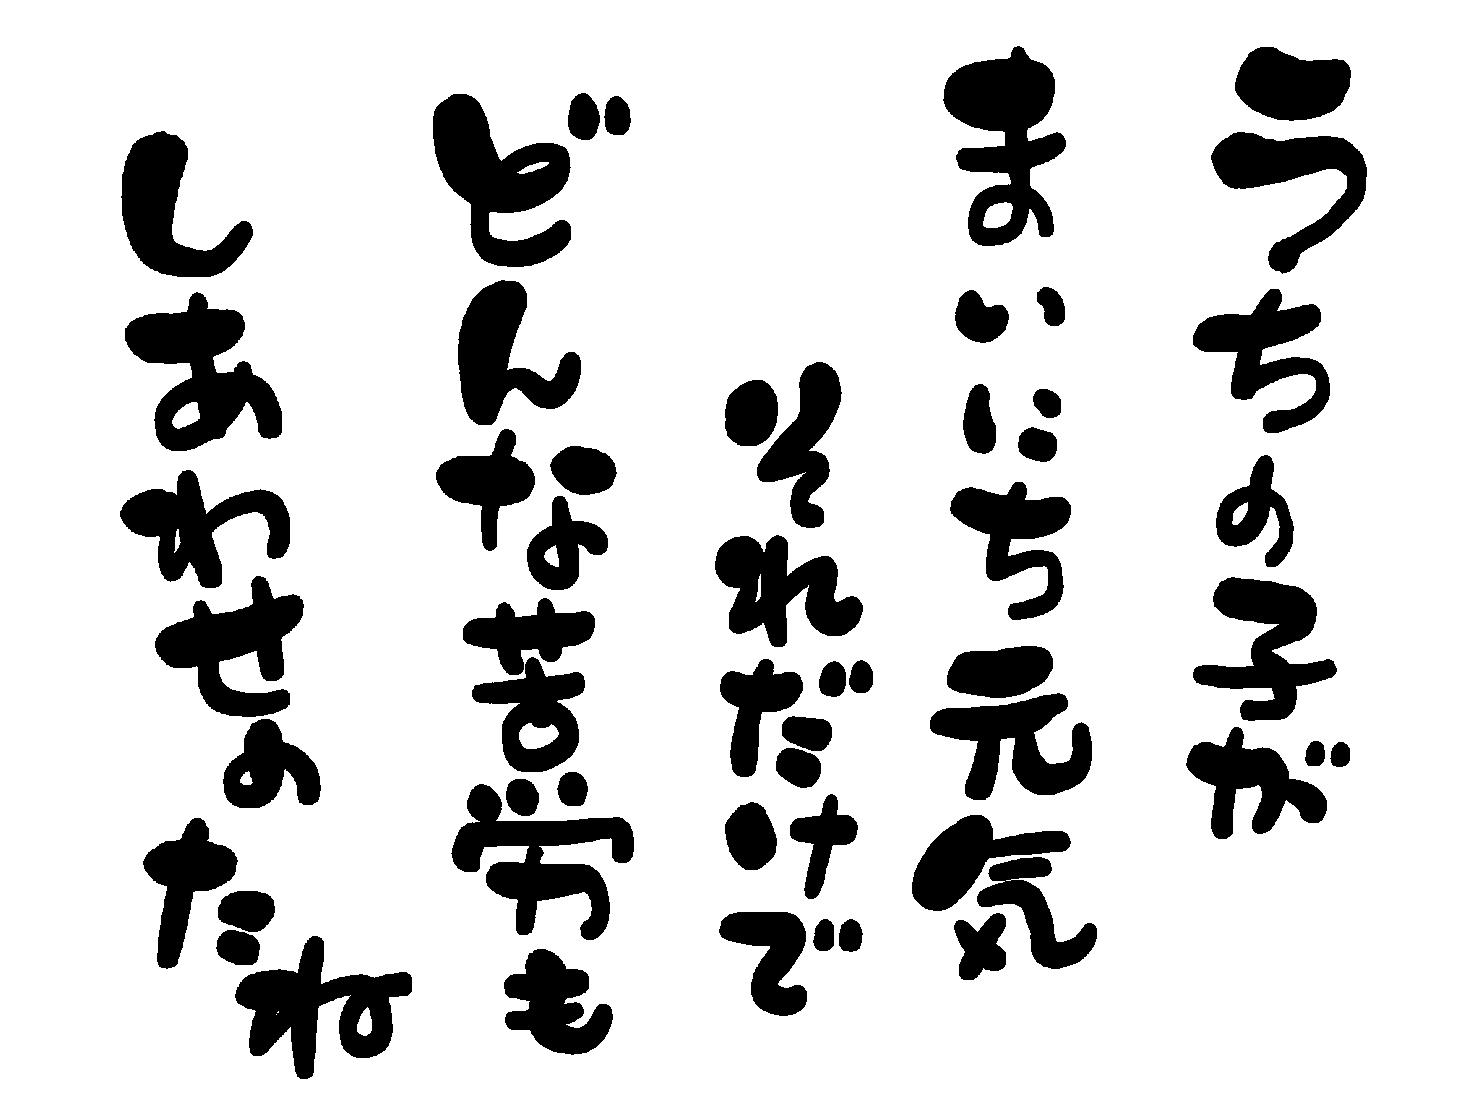 うちの子が
まいにち元気
それだけで
どんな苦労も
しあわせのたね